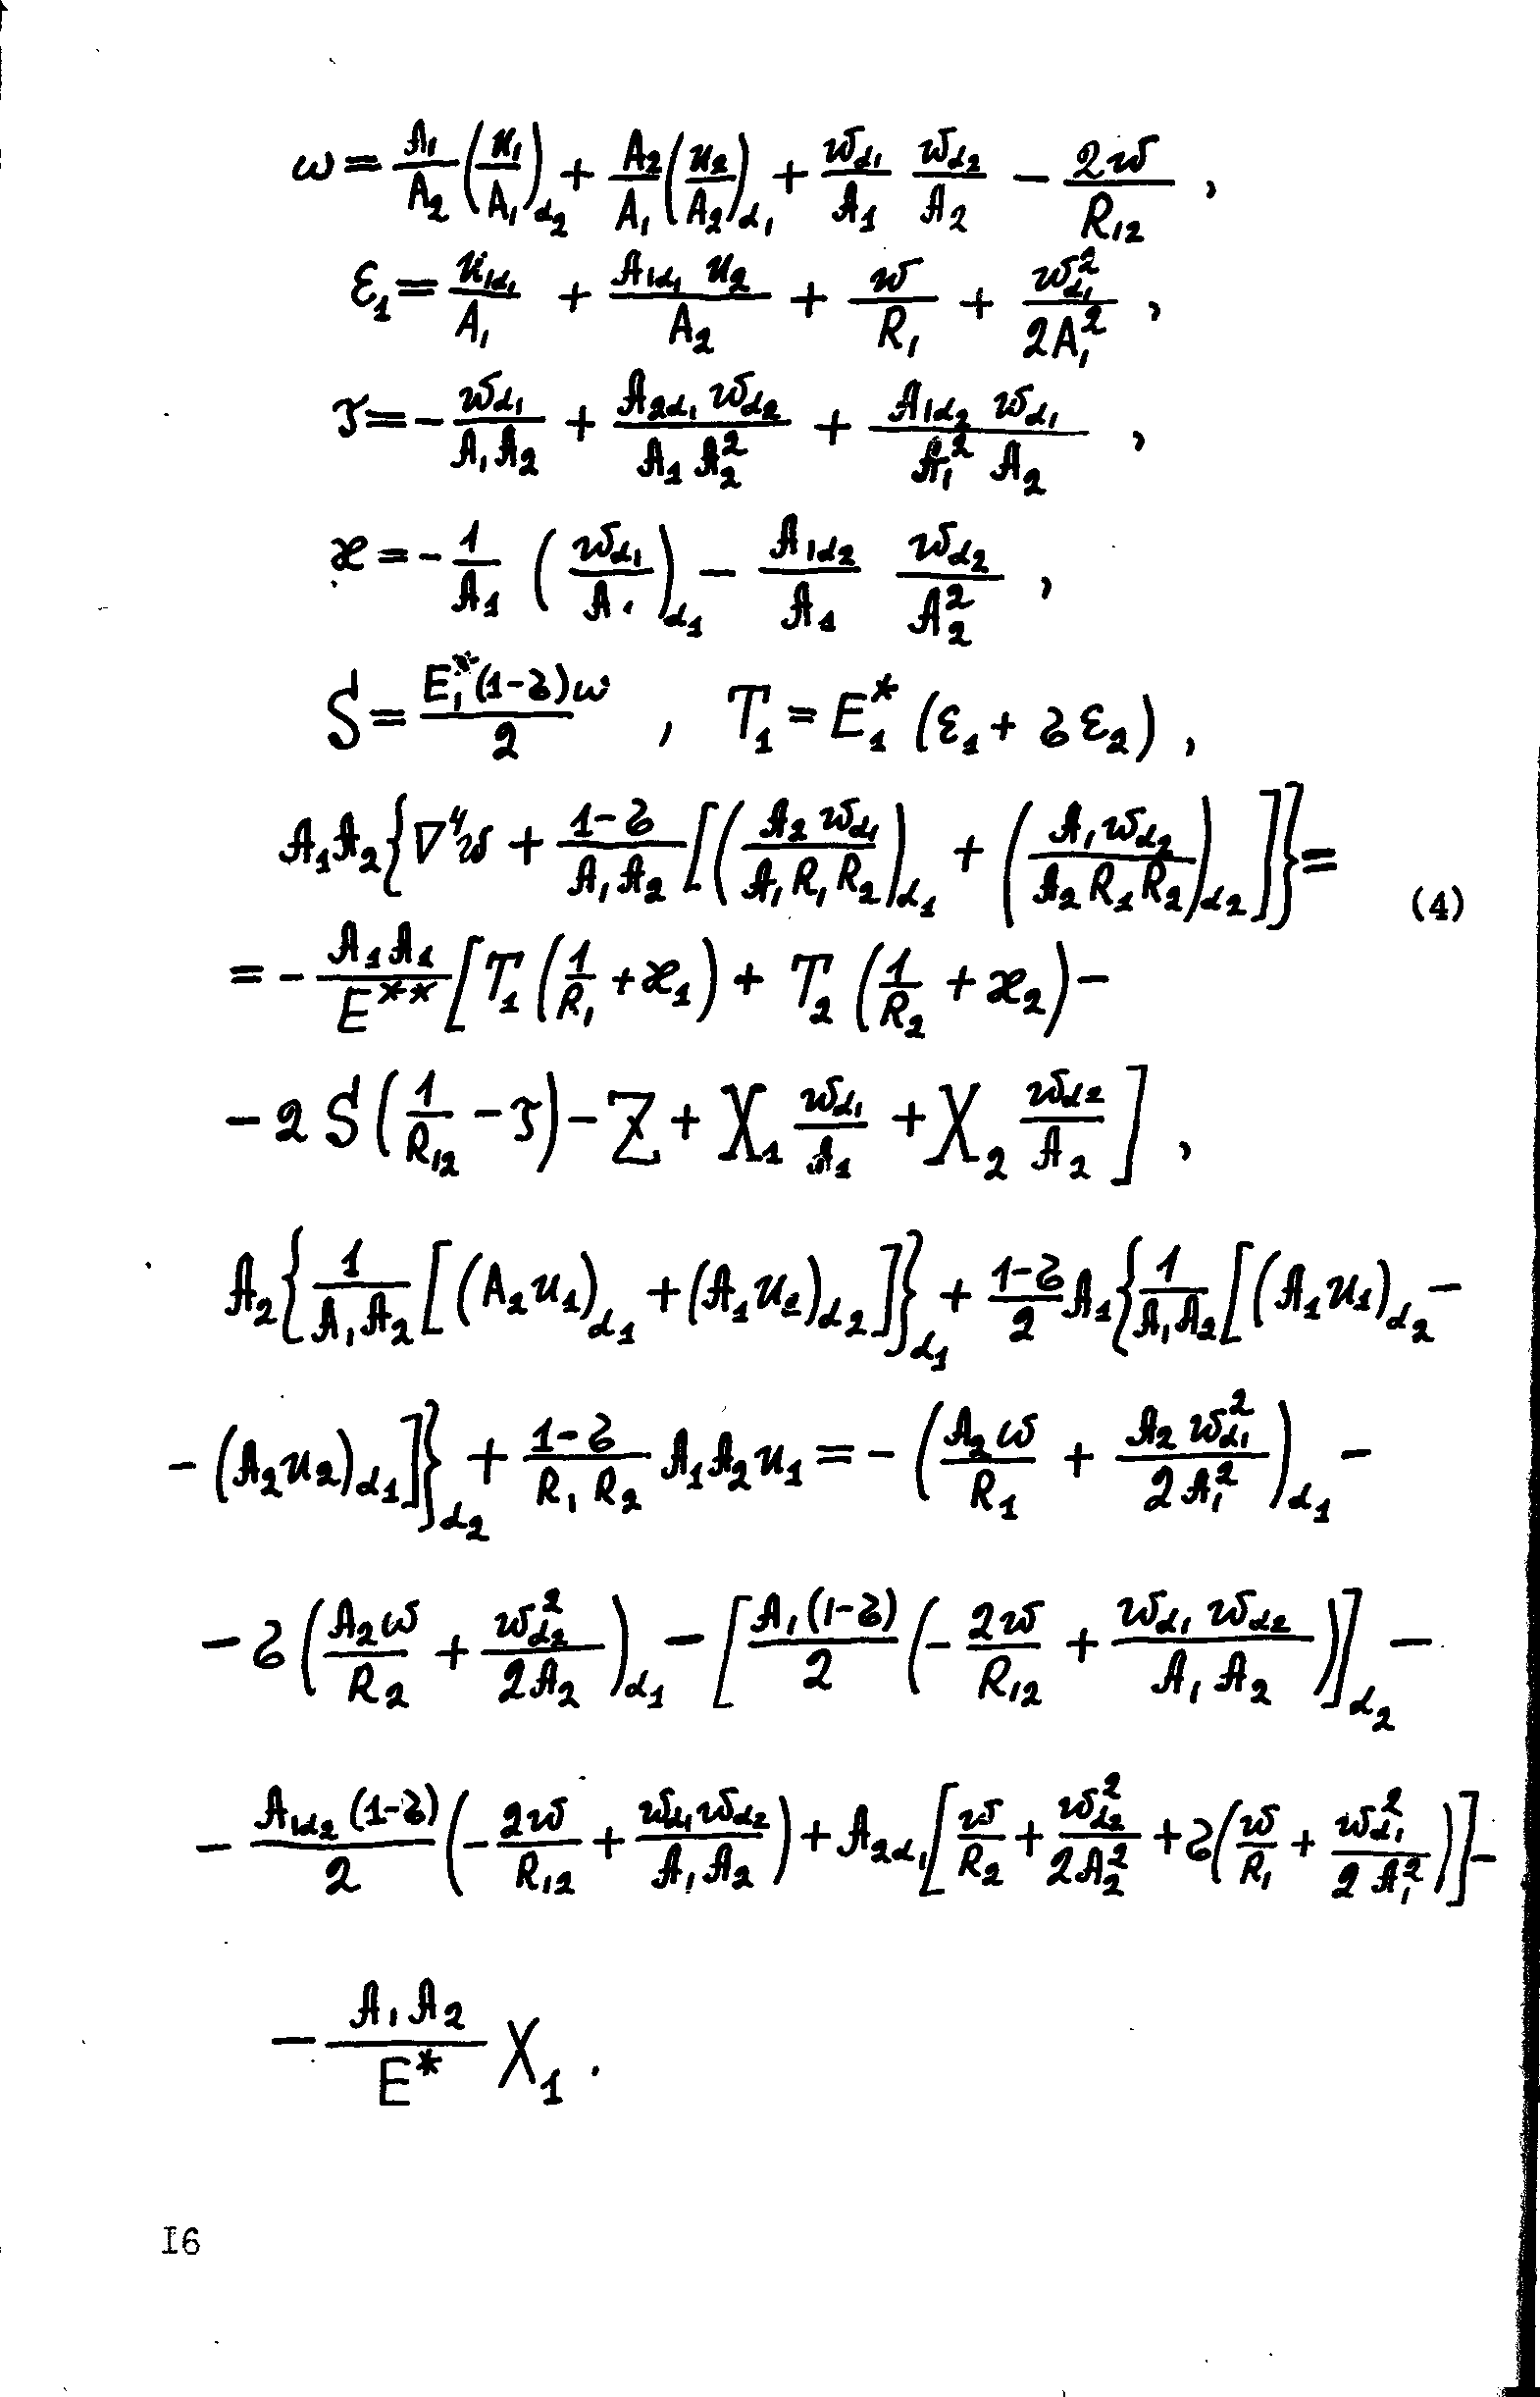 ω = \frac{A_1}{A_2} \left(\frac{u_1}{A_1}\right)_{α_2} + \frac{A_2}{A_1} \left(\frac{u_2}{A_2}\right)_{α_1} + \frac{w_{α_1}}{A_1} \frac{w_{α_2}}{A_2} - \frac{2w}{R_{12}} ,
ε_1 = \frac{u_{1α_1}}{A_1} + \frac{A_{1α_1} u_2}{A_2} + \frac{w}{R_1} + \frac{w_{α_1}^2}{2A_1^2} ,
τ = - \frac{w_{α_1}}{A_1 A_2} + \frac{A_{2α_1} w_{α_2}}{A_1 A_2^2} + \frac{A_{1α_2} w_{α_1}}{A_1^2 A_2} ,
æ = - \frac{1}{A_1} \left(\frac{w_{α_1}}{A_1}\right)_{α_1} - \frac{A_{1α_2}}{A_1} \frac{w_{α_2}}{A_2^2} ,
S = \frac{E_1^* (1-σ) ω}{2} , T_1 = E_1^* (ε_1 + σ ε_2) ,
A_1 A_2 \{ ∇^4 w + \frac{1-σ}{A_1 A_2} [ \left(\frac{A_2 w_{α_1}}{A_1 R_1 R_2}\right)_{α_1} + \left(\frac{A_1 w_{α_2}}{A_2 R_1 R_2}\right)_{α_2} ] \} =
(4)
= - \frac{A_1 A_1}{E^{**}} [ T_1 \left(\frac{1}{R_1} + æ_1\right) + T_2 \left(\frac{1}{R_2} + æ_2\right) -
- 2 S \left(\frac{1}{R_{12}} - τ\right) - Z + X_1 \frac{w_{α_1}}{A_1} + X_2 \frac{w_{α_2}}{A_2} ] ,
A_2 \{ \frac{1}{A_1 A_2} [ (A_2 u_1)_{α_1} + (A_1 u_2)_{α_2} ] \}_{α_1} + \frac{1-σ}{2} A_1 \{ \frac{1}{A_1 A_2} [ (A_1 u_1)_{α_2} -
- (A_2 u_2)_{α_1} ] \}_{α_2} + \frac{1-σ}{R_1 R_2} A_1 A_2 u_1 = - \left(\frac{A_2 ω}{R_1} + \frac{A_2 w_{α_1}^2}{2 A_1^2}\right)_{α_1} -
- σ \left(\frac{A_2 ω}{R_2} + \frac{w_{α_2}^2}{2A_2}\right)_{α_1} - [ \frac{A_1 (1-σ)}{2} \left(- \frac{2w}{R_{12}} + \frac{w_{α_1} w_{α_2}}{A_1 A_2}\right) ]_{α_2} -
- \frac{A_{1α_2} (1-σ)}{2} \left(- \frac{2w}{R_{12}} + \frac{w_{α_1} w_{α_2}}{A_1 A_2}\right) + A_{2α_1} [ \frac{w}{R_2} + \frac{w_{α_2}^2}{2A_2^2} + σ \left(\frac{w}{R_1} + \frac{w_{α_1}^2}{2 A_1^2}\right) ] -
- \frac{A_1 A_2}{E^*} X_1 .
I6